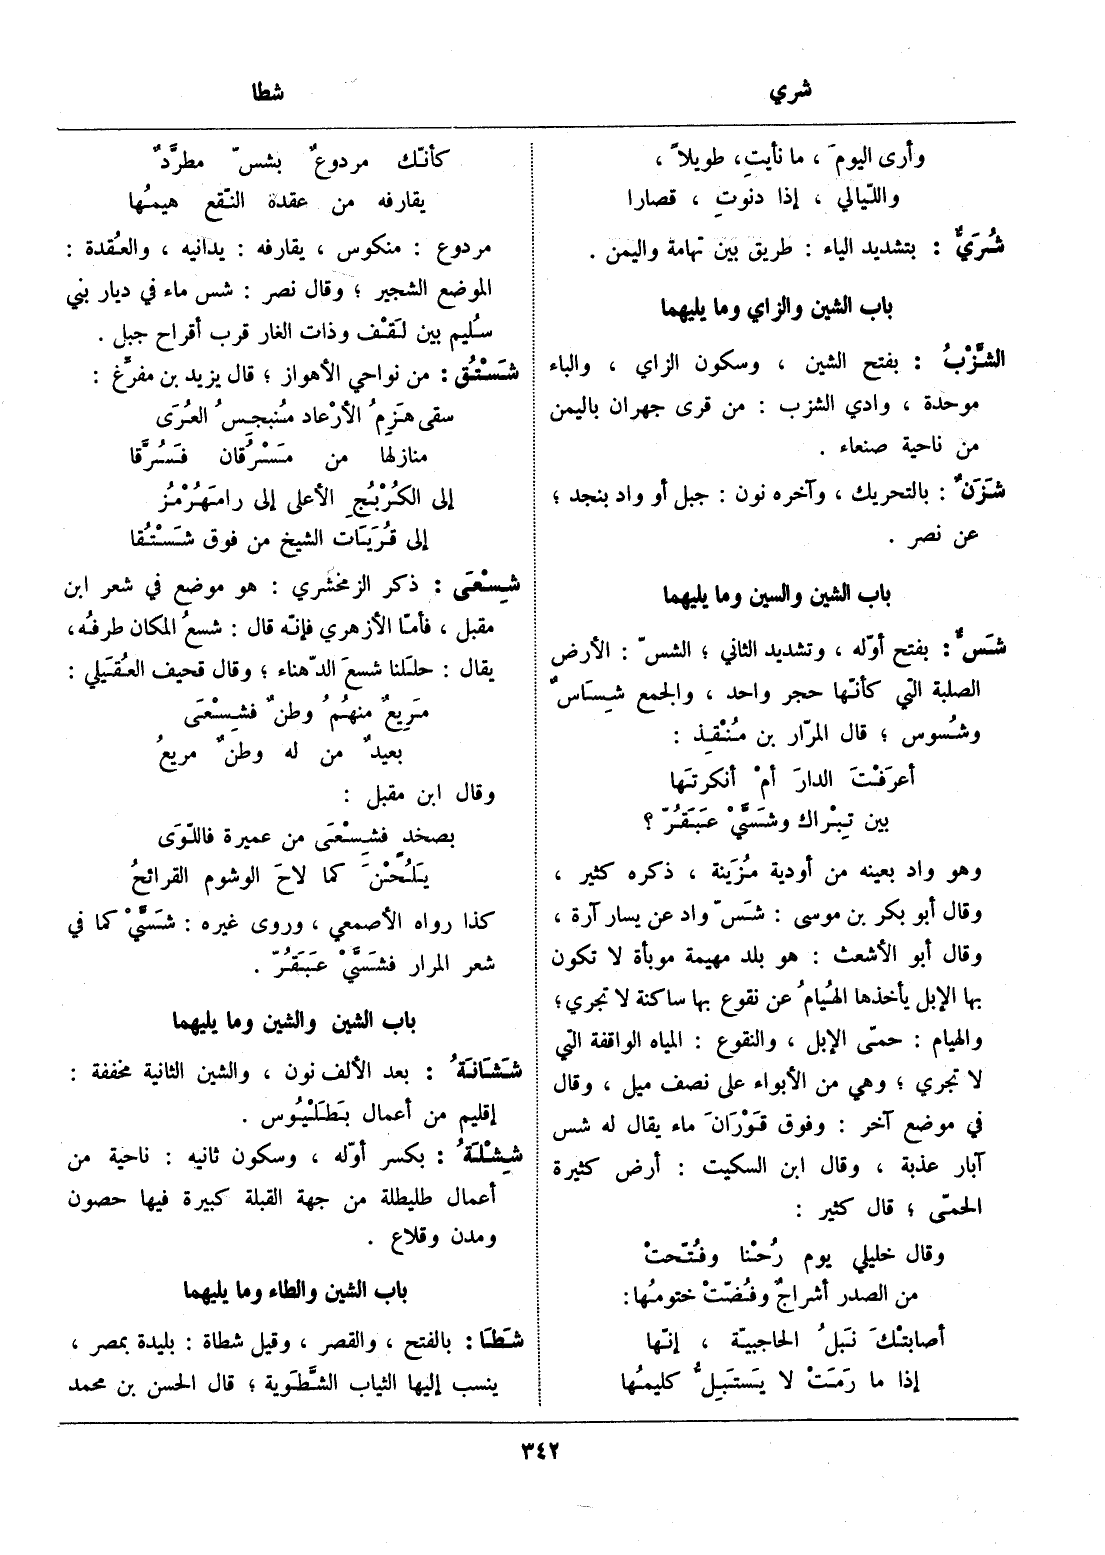 شري
شطا
وأرى اليومَ ، ما نأيتِ، طويلاً ،
والليالي ، إذا دنوتِ ، قصارا
شُرَيٌّ : بتشديد الياء : طريق بين تهامة واليمن .
باب الشين والزاي وما يليهما
الشَّزْبُ : بفتح الشين ، وسكون الزاي ، والباء
موحدة ، وادي الشزب : من قرى جهران باليمن
من ناحية صنعاء .
شَزَنٌ : بالتحريك ، وآخره نون : جبل أو واد بنجد ؛
عن نصر .
باب الشين والسين وما يليهما
شَسٌّ : بفتح أوّله ، وتشديد الثاني ؛ الشسّ : الأرض
الصلبة التي كأنّها حجر واحد ، والجمع شِسَاسٌ
وشُسوس ؛ قال المرّار بن مُنْقِذ :
أعرَفْتَ الدارَ أمْ أنكرتَها
بين تِبْراك وشَسَّيْ عَبَقُرّ ؟
وهو واد بعينه من أودية مُزَينة ، ذكره كثير ،
وقال أبو بكر بن موسى : شَسّ واد عن يسار آرة ،
وقال أبو الأشعث : هو بلد مهيمة موبأة لا تكون
بها الإبل يأخذها الهُيامُ عن نقوع بها ساكنة لا تجري؛
والهيام : حمّى الإبل ، والنقوع : المياه الواقفة التي
لا تجري ؛ وهي من الأبواء على نصف ميل ، وقال
في موضع آخر : وفوق قَوْرَانَ ماء يقال له شس
آبار عذبة ، وقال ابن السكيت : أرض كثيرة
الحمّى ؛ قال كثير :
وقال خليلي يوم رُحْنا وفُتّحتْ
من الصدر أشراجٌ وفُضّتْ ختومُها:
أصابتْكَ نَبلُ الحاجبيّة ، إنّها
إذا ما رَمَتْ لا يَستَبِلُّ كليمُها
كأنّك مردوعٌ بشسّ مطرَّدٌ
يقارفه من عقدة النّقع هيمُها
مردوع : منكوس ، يقارفه : يدانيه ، والعُقدة :
الموضع الشجير ؛ وقال نصر : شس ماء في ديار بني
سُليم بين لَقْف وذات الغار قرب أقراح جبل .
شَسْتُق : من نواحي الأهواز ؛ قال يزيد بن مفرّغ :
سقى هَزِمُ الأرْعاد مُنبجِسُ العُرَى
منازلها من مَسْرُقان فَسُرَّقا
إلى الكُرْبُجِ الأعلى إلى رامَهُرْمُز
إلى قُرَيَات الشيخ من فوق شَسْتُقا
شِسْعَى : ذكر الزمخشري : هو موضع في شعر ابن
مقبل ، فأمّا الأزهري فإنّه قال : شسعُ المكان طرفُه،
يقال : حلَلنا شسعَ الدّهناء ؛ وقال قحيف العُقَيلي :
مَرِيعٌ منهُمُ وطنٌ فشِسْعَى
بعيدٌ من له وطنٌ مريعُ
وقال ابن مقبل :
بصخد فشِسْعَى من عميرة فاللّوَى
يَلُحْنَ كما لاحَ الوشوم القرائحُ
كذا رواه الأصمعي ، وروى غيره : شَسَّيْ كما في
شعر المرار فشَسَّيْ عَبَقُرّ .
باب الشين والشين وما يليهما
شَشَانَةُ : بعد الألف نون ، والشين الثانية مخففة :
إقليم من أعمال بَطَلْيُوس .
شِشْلَةُ : بكسر أوّله ، وسكون ثانيه : ناحية من
أعمال طليطلة من جهة القبلة كبيرة فيها حصون
ومدن وقلاع .
باب الشين والطاء وما يليهما
شَطَا : بالفتح ، والقصر ، وقيل شطاة : بليدة بمصر ،
ينسب إليها الثياب الشَّطَوية ؛ قال الحسن بن محمد
٣٤٢